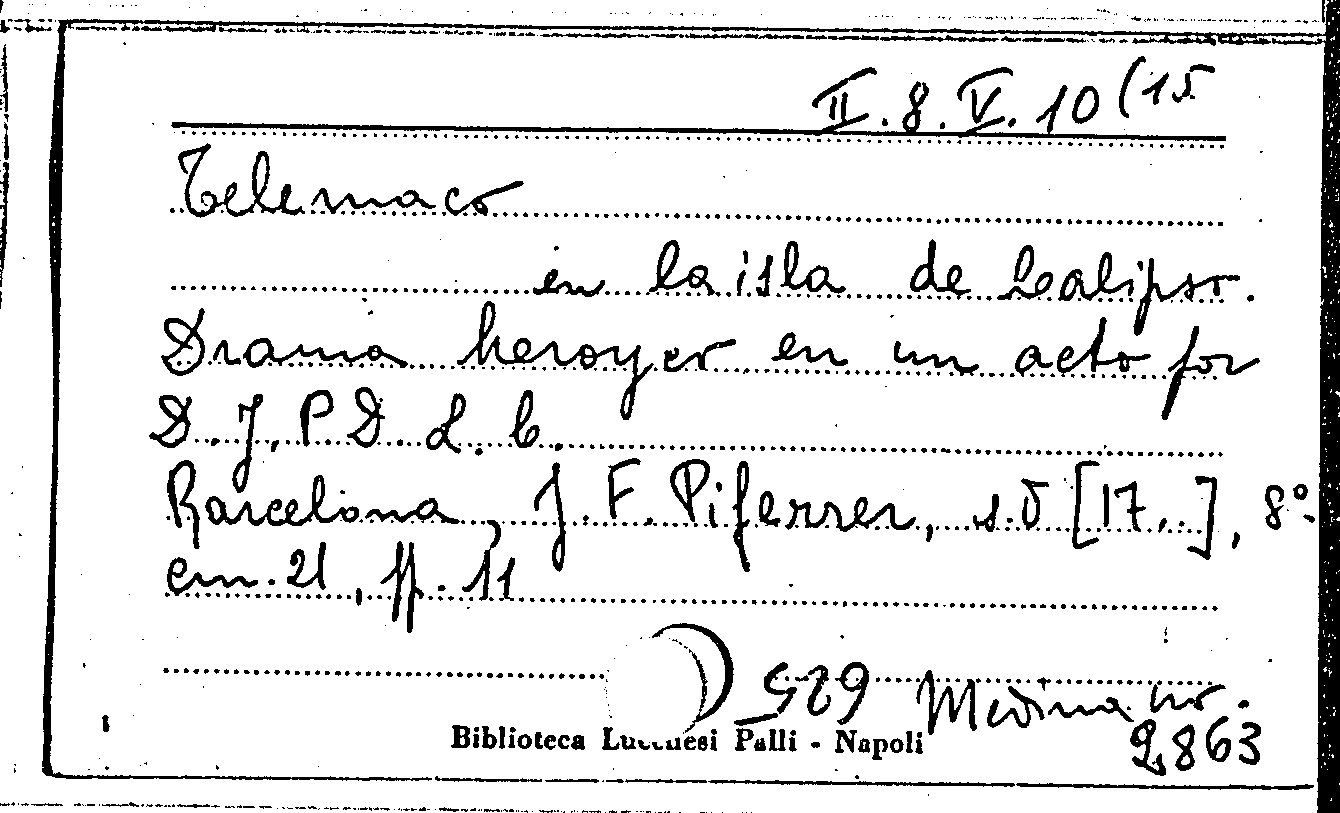 II.8.V.10(15
Telemaco
en la isla de Calipso.
Drama heroyco en un acto por
D. J. P. D. L. C.
Barcelona, J. F. Piferrer, s.d [17..], 8º
cm. 21, pp. 11
529 Medina nr.
2863
Biblioteca Lucchesi Palli - Napoli